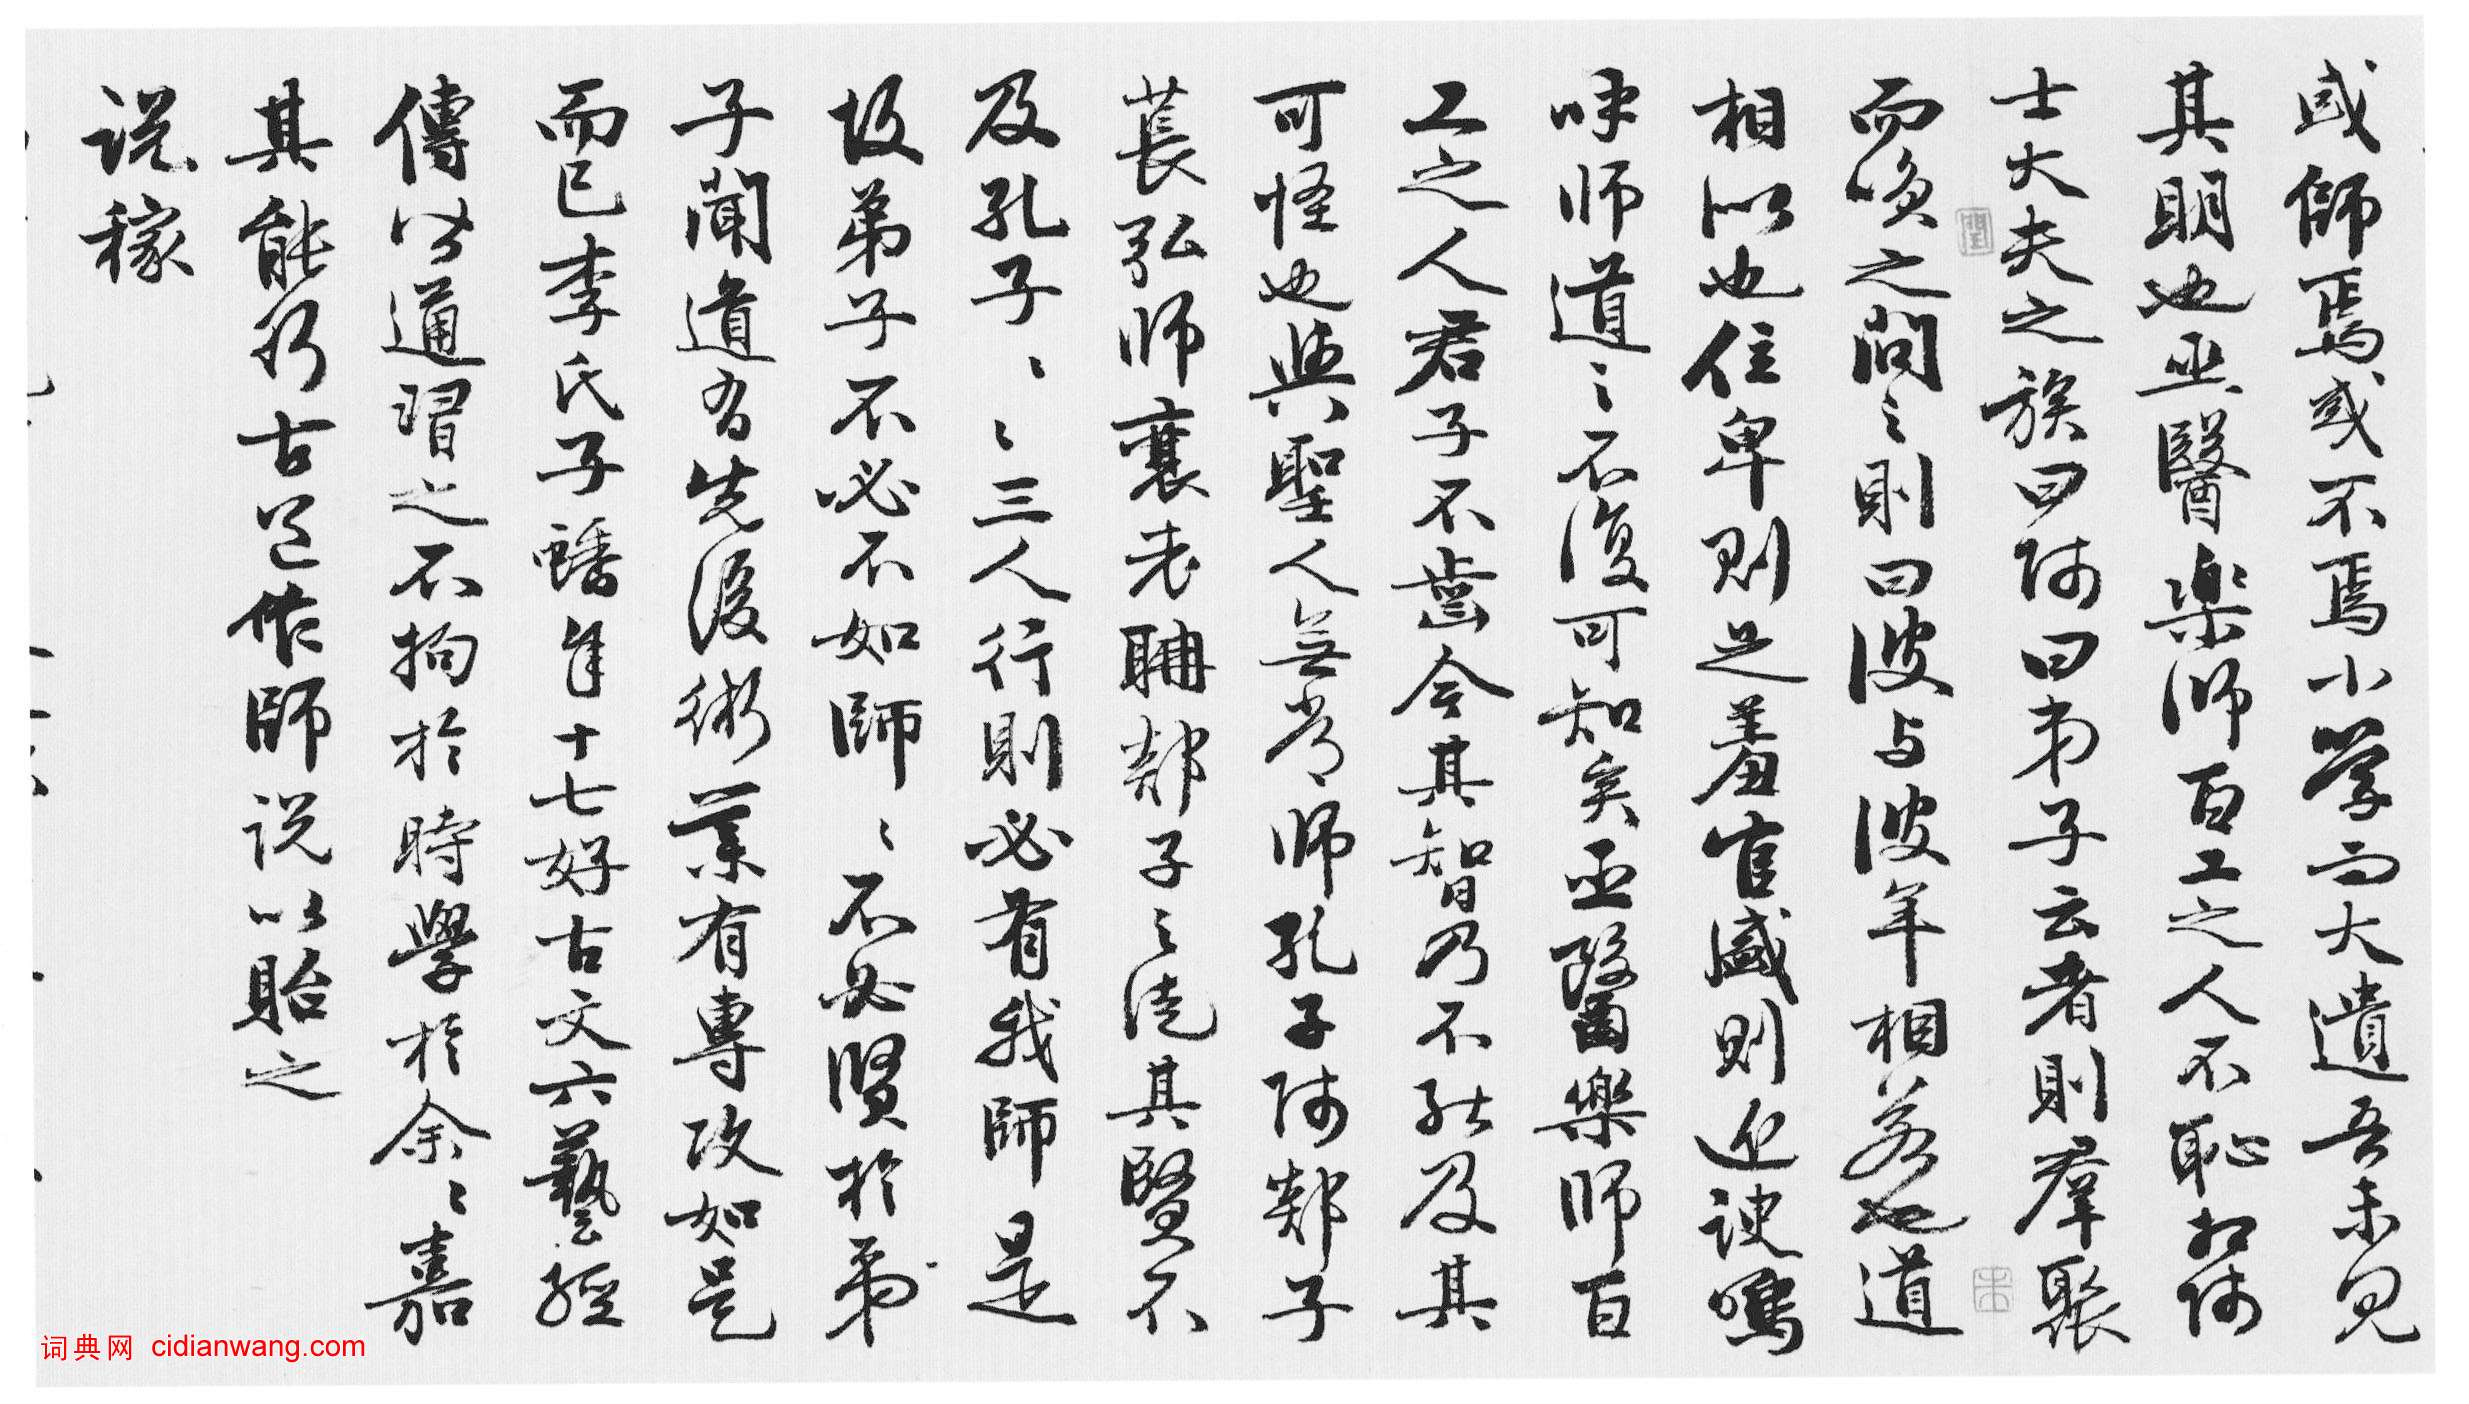 或師焉或不焉小学而大遺吾未見
其明也巫醫樂师百工之人不恥相师
士大夫之族曰师曰弟子云者則羣聚
而笑之問〻則曰彼与彼年相若也道
相似也位卑则足羞官盛则近諛嗚
呼师道〻不復可知矣巫醫樂师百
工之人君子不齒今其智乃不能及其
可怪也與聖人無常师孔子师郯子
萇弘师襄老聃郯子〻徒其賢不
及孔子〻〻三人行則必有我師是
故弟子不必不如師〻不必贤於弟
子聞道有先後術業有專攻如是
而已李氏子蟠年十七好古文六藝經
傳皆通習之不拘於時學於余〻嘉
其能行古道作師说以貽之
说稼
词典网 cidianwang.com